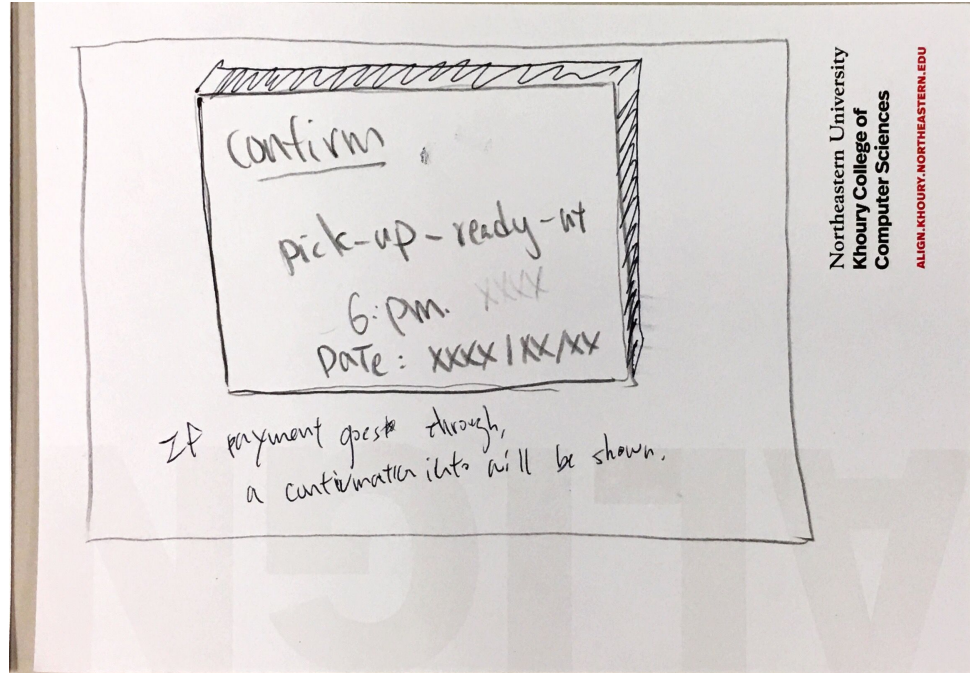 Confirm
pick-up-ready-at
6:pm. XXXX
Date: XXXX/XX/XX
If payment goes through,
a confirmation info will be shown.
Northeastern University
Khoury College of
Computer Sciences
ALIGN.KHOURY.NORTHEASTERN.EDU
ALIGN